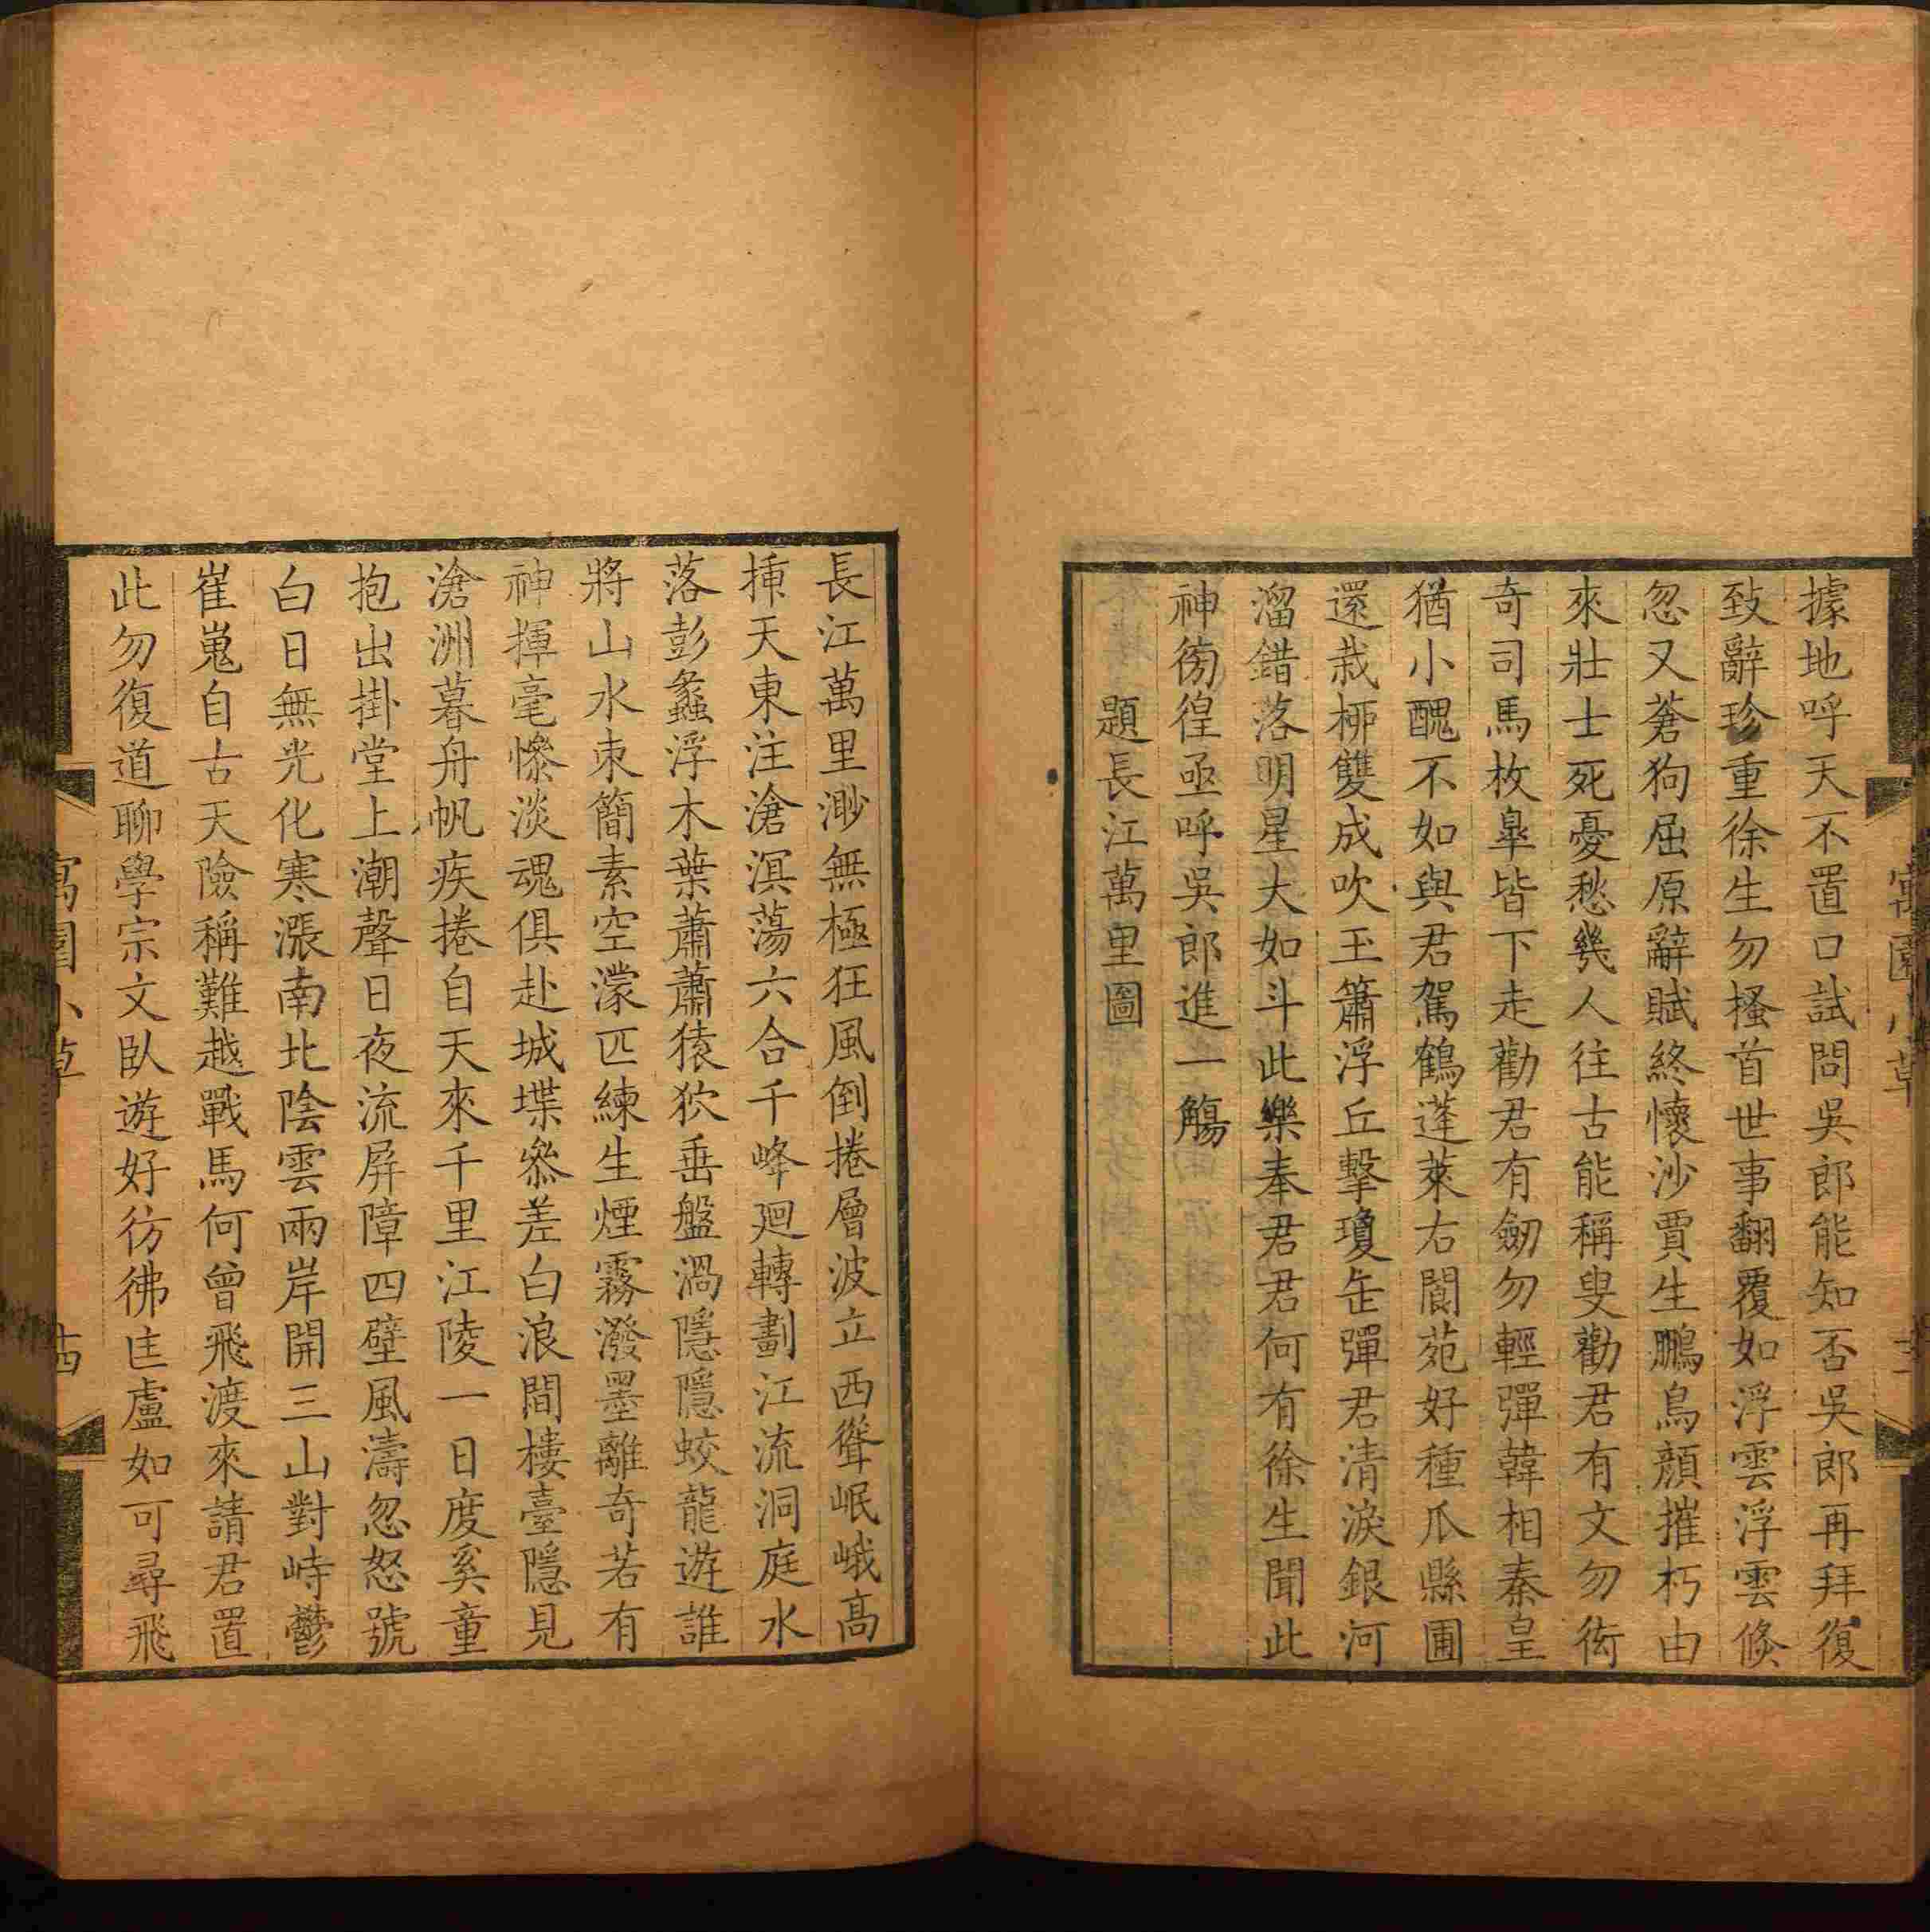 據地呼天不置口試問吳郎能知否吳郎再拜復
致辭珍重徐生勿搔首世事翻覆如浮雲浮雲倏
忽又蒼狗屈原辭賦終懷沙賈生鵩鳥顔摧朽由
來壯士死憂愁幾人往古能稱叟勸君有文勿衒
奇司馬枚臯皆下走勸君有劒勿輕彈韓相秦皇
猶小醜不如與君駕鶴蓬萊右閬苑好種瓜縣圃
還栽桺雙成吹玉簫浮丘擊瓊缶彈君清淚銀河
溜錯落明星大如斗此樂奉君君何有徐生聞此
神徬徨亟呼吳郎進一觴
題長江萬里圖
寓園小草
長江萬里渺無極狂風倒捲層波立西聳岷峨高
揷天東注滄溟蕩六合千峰廻轉劃江流洞庭水
落彭蠡浮木葉蕭蕭猿狖垂盤渦隱隱蛟龍遊誰
將山水朿簡素空濛匹練生煙霧潑墨離奇若有
神揮毫慘淡魂俱赴城堞叅差白浪間樓臺隱見
滄洲暮舟帆疾捲自天來千里江陵一日度奚童
抱出掛堂上潮聲日夜流屏障四壁風濤忽怒號
白日無光化寒漲南北陰雲兩岸開三山對峙鬱
崔嵬自古天險稱難越戰馬何曾飛渡來請君置
此勿復道聊學宗文臥遊好彷彿匡廬如可尋飛
寓園小草